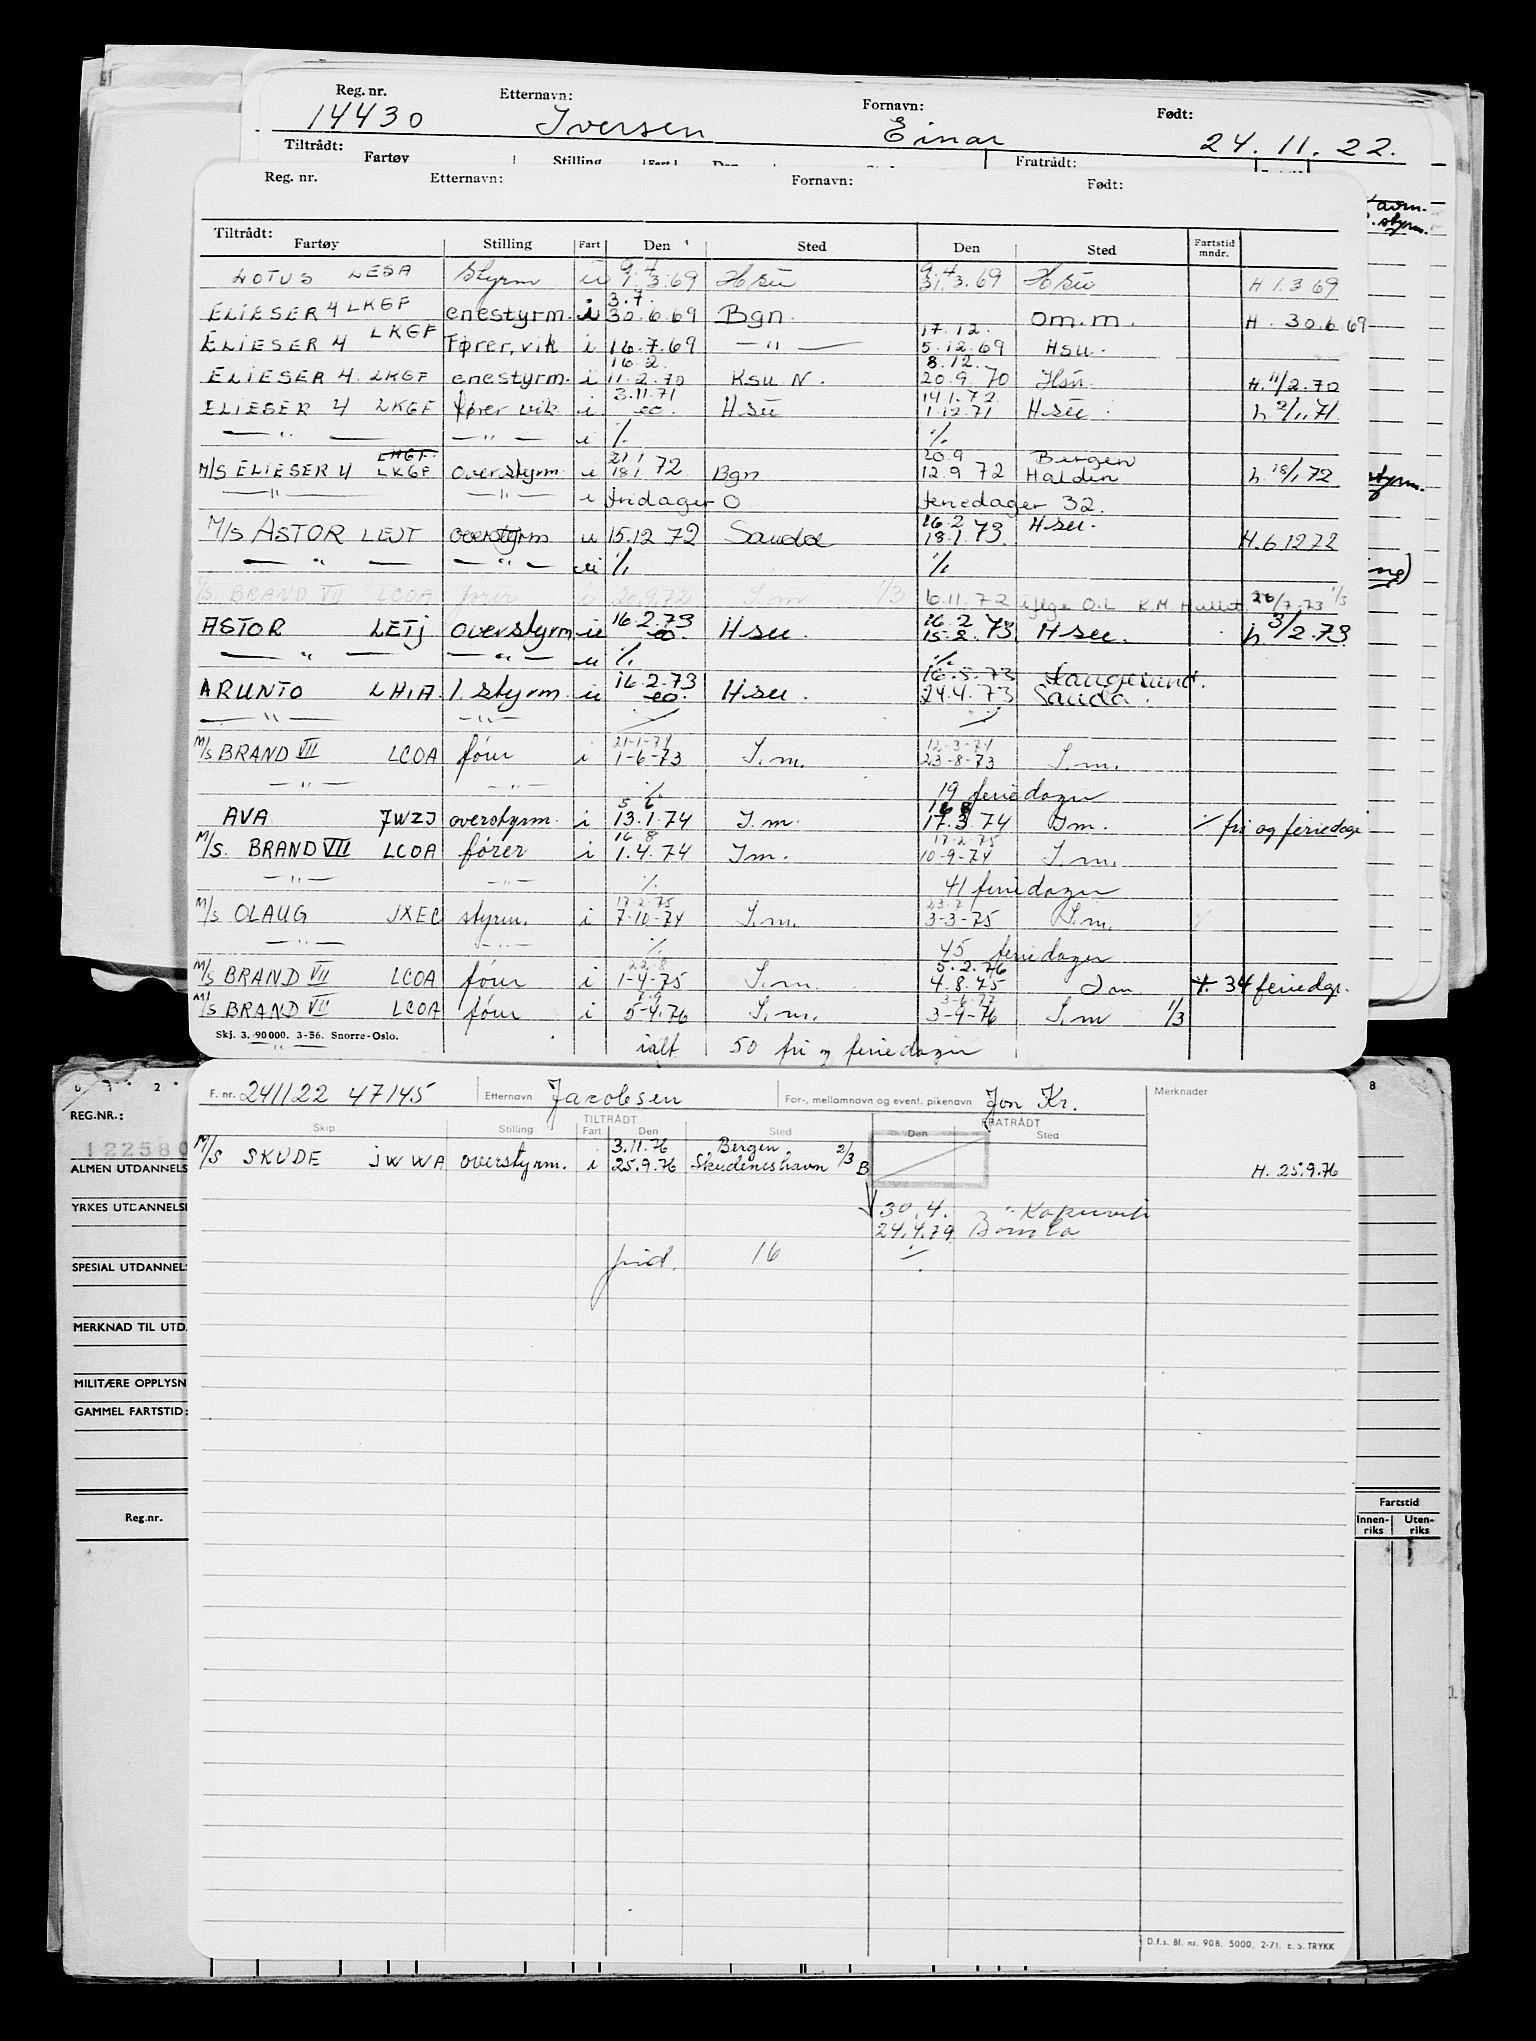 Reg. nr. Etternavn: Fornavn: Født:
14430 Iversen Einar 24.11.22.
Tiltrådt: Fartøy Stilling Fart Den Fratrådt:
Reg. nr. Etternavn: Fornavn: Født:
Tiltrådt:
Fartøy Stilling Fart Den Sted Den Sted Fartstid mndr.
9.4 9.4
LOTUS LESA Styrm u 1.3.69 Hsu 31.3.69 Hsu H 1.3.69
3.7.
ELIESER 4 LKGF enestyrm. i 30.6.69 Bgn. om.m. H. 30.6.69
17.12.
ELIESER 4 LKGF Fører, vik i 16.7.69 — " — 5.12.69 Hsu.
16.2. 8.12.
ELIESER 4. LKGF enestyrm. i 11.2.70 Ksu N. 20.9.70 Hsu. H. 11/2.70
3.11.71 14.1.72
ELIESER 4 LKGF fører vik i eo. Hsu 1.12.71 Hsu. h 2/11 71
— " — — " — u ./. ./.
LKGF 21/1 20.9 Bergen
M/S ELIESER 4 LKGF overstyrm. u 18/1 72 Bgn 12.9 72 Halden h. 18/1 72
— " — — " — i fridager 0 feriedager 32.
16.2 Hsu.
M/S ASTOR LEJT overstyrm u 15.12 72 Sauda 18.1.73. H.6.12 72
— " — — " — u ./. ./.
M/S. BRAND VII LCOA fører i 20.9.72 I.m 1/3 6.11.72 iflge O.L K.M. Hullet. 26/7.73 1/3
16.2.73 16.2
ASTOR LETJ overstyrm u eo. Hsu. 15.2.73 Hsu. h 3/2.73
— " — — " — u ./. ./.
16.2.73 16.5.73 Haugesund.
ARUNTO LHIA 1. styrm. u eo. Hsu. 24.4.73 Sauda.
— " — — " — ./. ./.
21-1-74 12-3-74
M/S BRAND VII LCOA fører i 1-6-73 I.m. 23-8-73 I.m.
— " — — " — ./. 19 feriedager
5 6 16 8
AVA JWZJ overstyrm. i 13.1.74 I.m. 17.3.74 Im. ./. fri og feriedage
16 8 17-2-75
M/S. BRAND VII LCOA fører i 1.4.74 Im. 10-9-74 I.m.
— " — — " — ./. 41 feriedager
17-2-75 23-7
M/S OLAUG JXEC styrm. i 7-10-74 I.m. 3-3-75 I.m.
— " — — " — ./. 45 feriedager
22-8 5.2.76
M/S BRAND VII LCOA fører i 1-4-75 I.m. 4.8.75 Im ./. 34 feriedgr.
7-9 3-6-77
M/S BRAND VII LCOA fører i 5-4.76 I.m. 3-9-76 I.m 1/3
Skj. 3. -90000. 3-56. Snorre-Oslo.
ialt 50 fri og feriedager
F. nr. 241122 47145 Etternavn Jacobsen For-, mellomnavn og event. pikenavn Jon Kr. Merknader
TILTRÅDT FRATRÅDT
Skip Stilling Fart Den Sted Den Sted
3.11.76 Bergen
M/S SKUDE JWWA overstyrm. i 25.9.76 Skudeneshavn 2/3 B H. 25.9.76
30.4. Kopervik
24.4.79 Bømlo
frid. 16 ./.
REG.NR.:
122580
ALMEN UTDANNELS
YRKES UTDANNELSE
SPESIAL UTDANNELS
MERKNAD TIL UTD.
MILITÆRE OPPLYSN
GAMMEL FARTSTID:
Reg.nr.
Fartstid
Innen-riks Uten-riks
D.f.s. Bl. nr. 908. 5000, 2-71. E. S. TRYKK